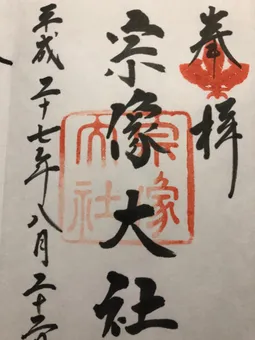 奉拝
宗像大社
平成二十七年八月二十二
宗像大社